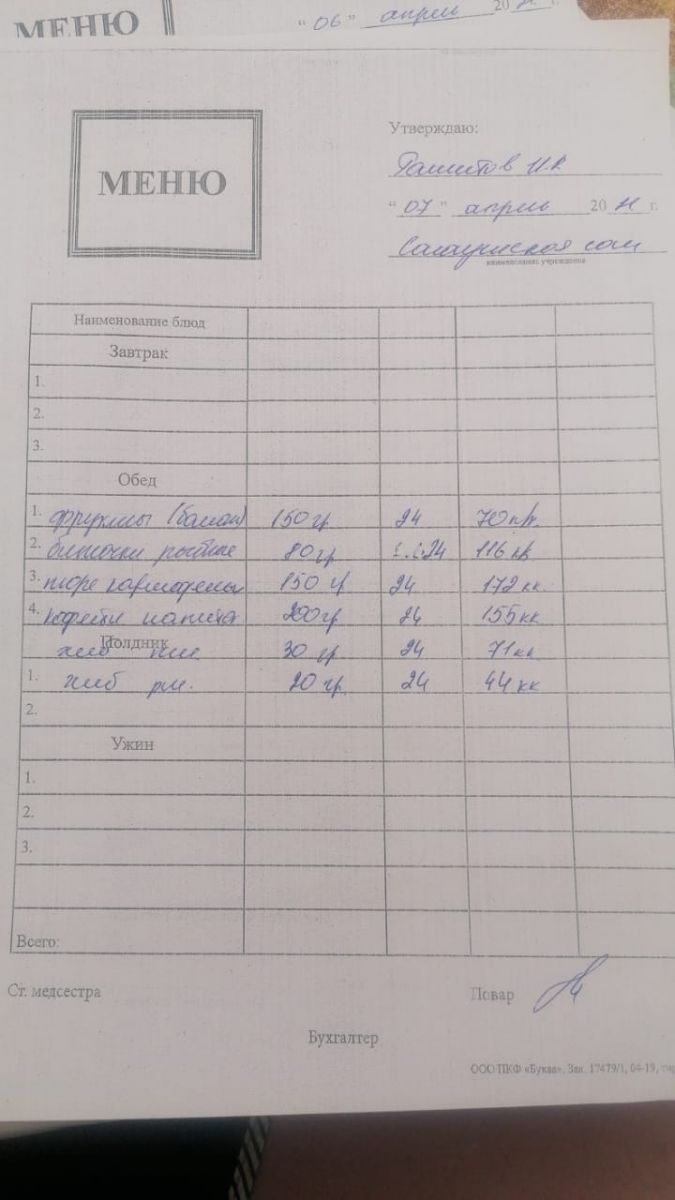 МЕНЮ
"06" апрель 20 г.
МЕНЮ
Утверждаю:
"07" апрель 20 г.
наименование учреждения
Наименование блюд
Завтрак
1.
2.
3.
Обед
1. фрукты (банан) 150 гр 24
2. биточки 80 гр 116 кк
3. пюре картофельн 150 гр 24 172 кк
4. кофейн напиток 200 гр 24 155 кк
Полдник
хлеб пш. 30 гр 24 71 кк
1. хлеб рж. 20 гр 24 44 кк
2.
Ужин
1.
2.
3.
Всего:
Ст. медсестра
Повар
Бухгалтер
ООО ПКФ «Буква». Зак. 17479/1, 04-19,